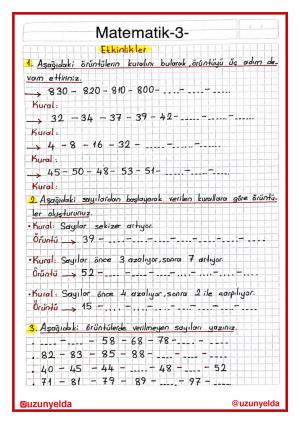 Matematik-3-
Etkinlikler
1. Aşağıdaki örüntülerin kuralını bularak, örüntüyü üç adım de-
vam ettiriniz.
→ 830 - 820 - 810 - 800 - ... - ... - ...
Kural:
→ 32 - 34 - 37 - 39 - 42 - ... - ... - ...
Kural:
→ 4 - 8 - 16 - 32 - ... - ... - ...
Kural:
→ 45 - 50 - 48 - 53 - 51 - ... - ... - ...
Kural:
2. Aşağıdaki sayılardan başlayarak verilen kurallara göre örüntü-
ler oluşturunuz.
• Kural: Sayılar sekizer artıyor.
Örüntü → 39 - ... - ... - ... - ... - ...
• Kural: Sayılar önce 3 azalıyor, sonra 7 artıyor.
Örüntü → 52 - ... - ... - ... - ... - ...
• Kural: Sayılar önce 4 azalıyor, sonra 2 ile çarpılıyor.
Örüntü → 15 - ... - ... - ... - ... - ...
3. Aşağıdaki örüntülerde verilmeyen sayıları yazınız.
• ... - ... - ... - 58 - 68 - 78 - ... - ...
• 82 - 83 - 85 - 88 - ... - ... - ... - ...
• 40 - 45 - 44 - ... - 48 - ... - 52
• 71 - 81 - 79 - 89 - ... - 97 - ...
@uzunyelda
@uzunyelda